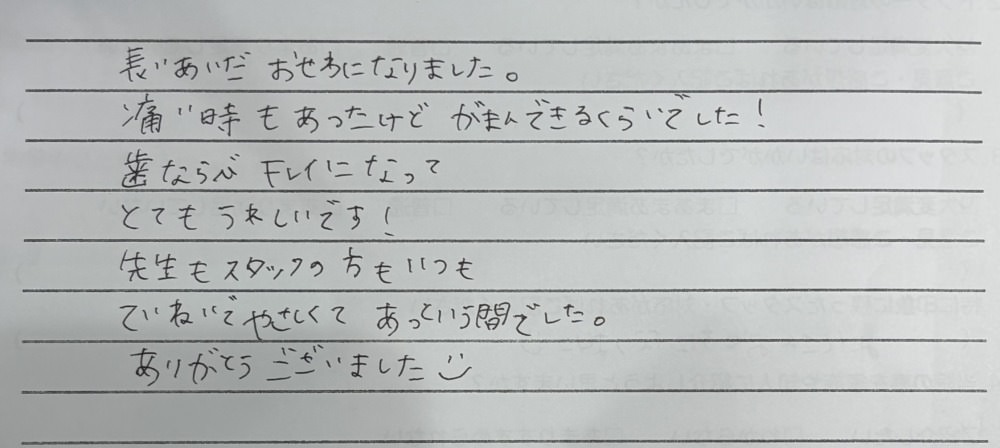 長いあいだ おせわになりました。
痛い時もあったけど がまんできるくらいでした!
歯ならび キレイになって
とてもうれしいです!
先生もスタッフの方もいつも
ていねいで やさしくて あっという間でした。
ありがとう ございました